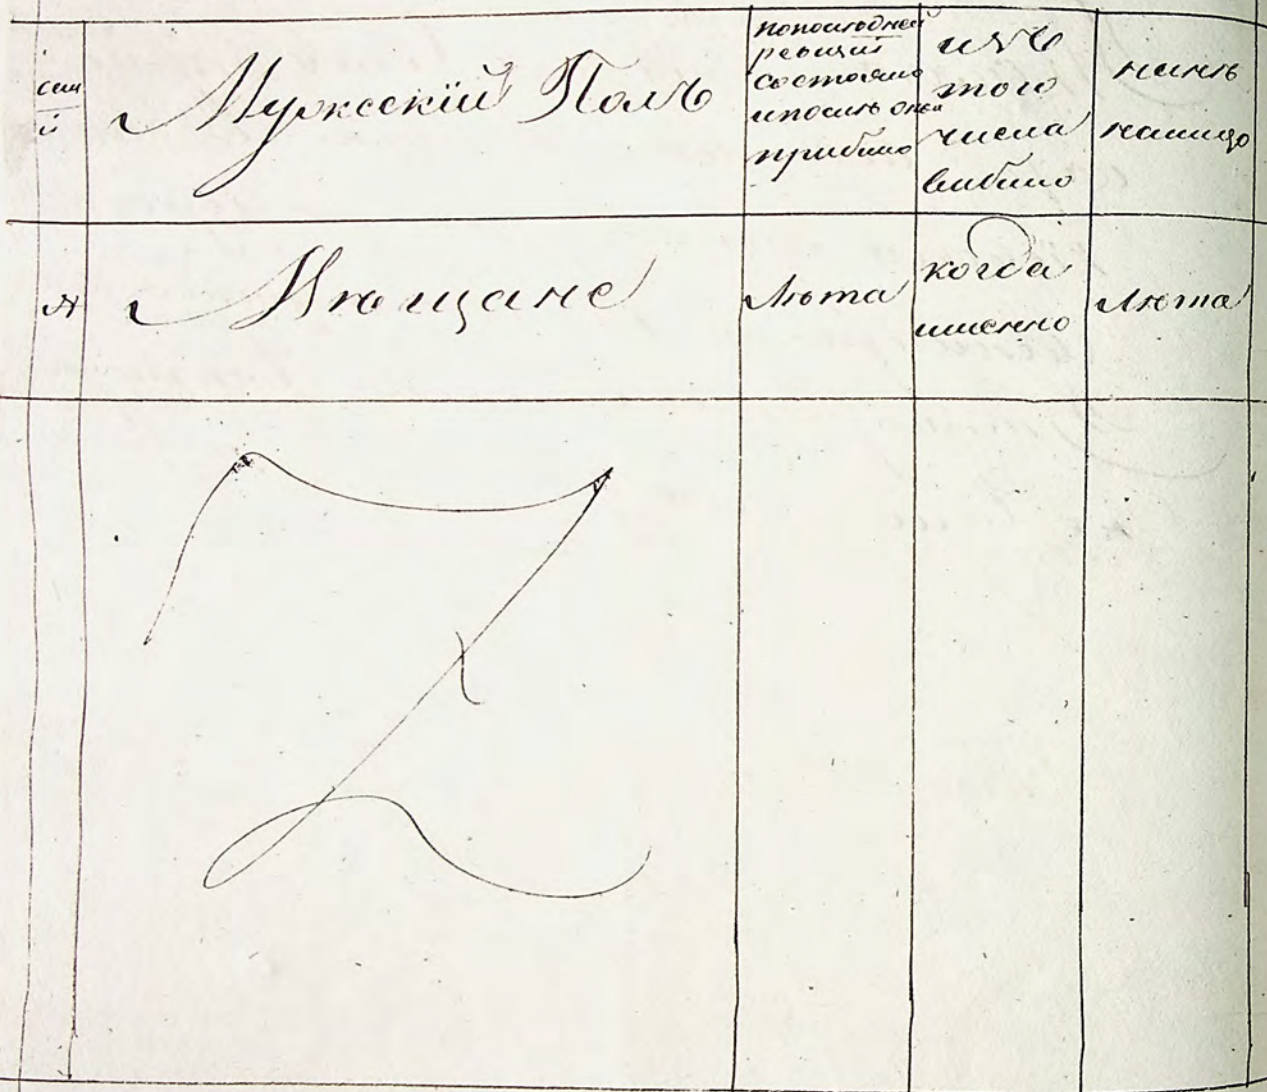 сем
й
Мужескій Полъ
попослѣдней
ревизіи
состояло
ипослѣ оной
прибыло
изъ
того
числа
выбыло
нынѣ
налицо
№
Мѣщане
Лѣта
когда
именно
Лѣта